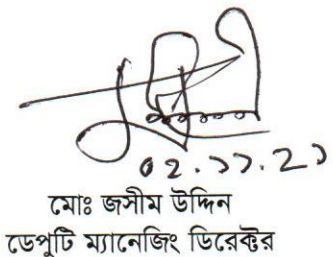 ০২.১১.২১
মোঃ জসীম উদ্দিন
ডেপুটি ম্যানেজিং ডিরেক্টর